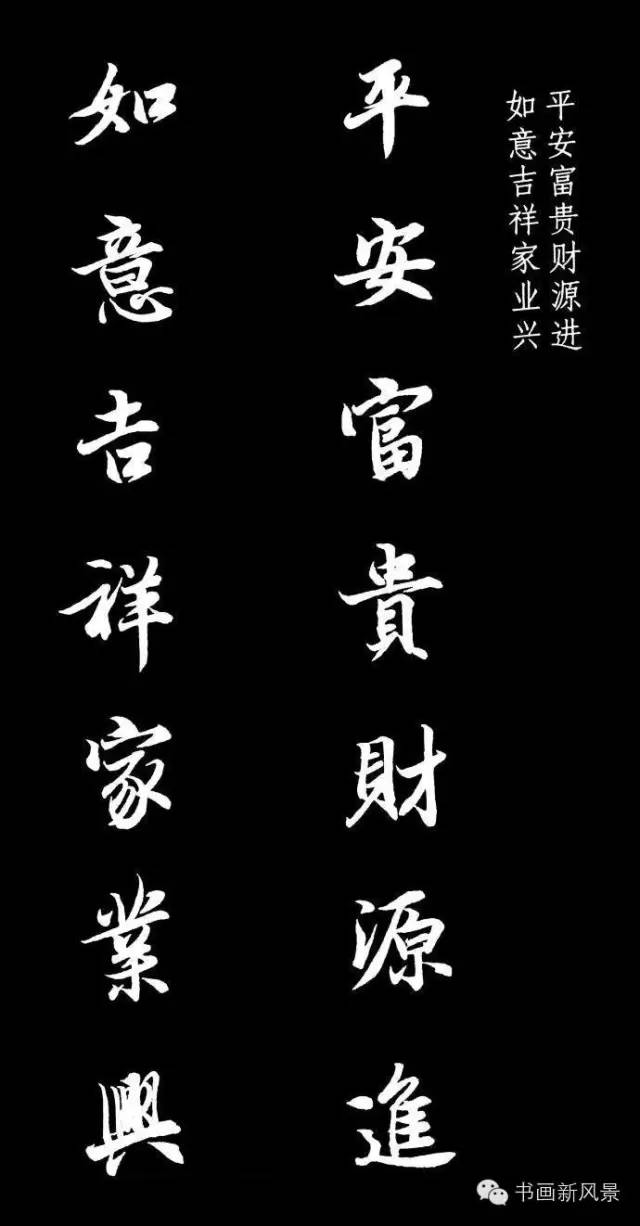 平安富贵财源进
如意吉祥家业兴
平安富貴財源進
如意吉祥家業興
书画新风景